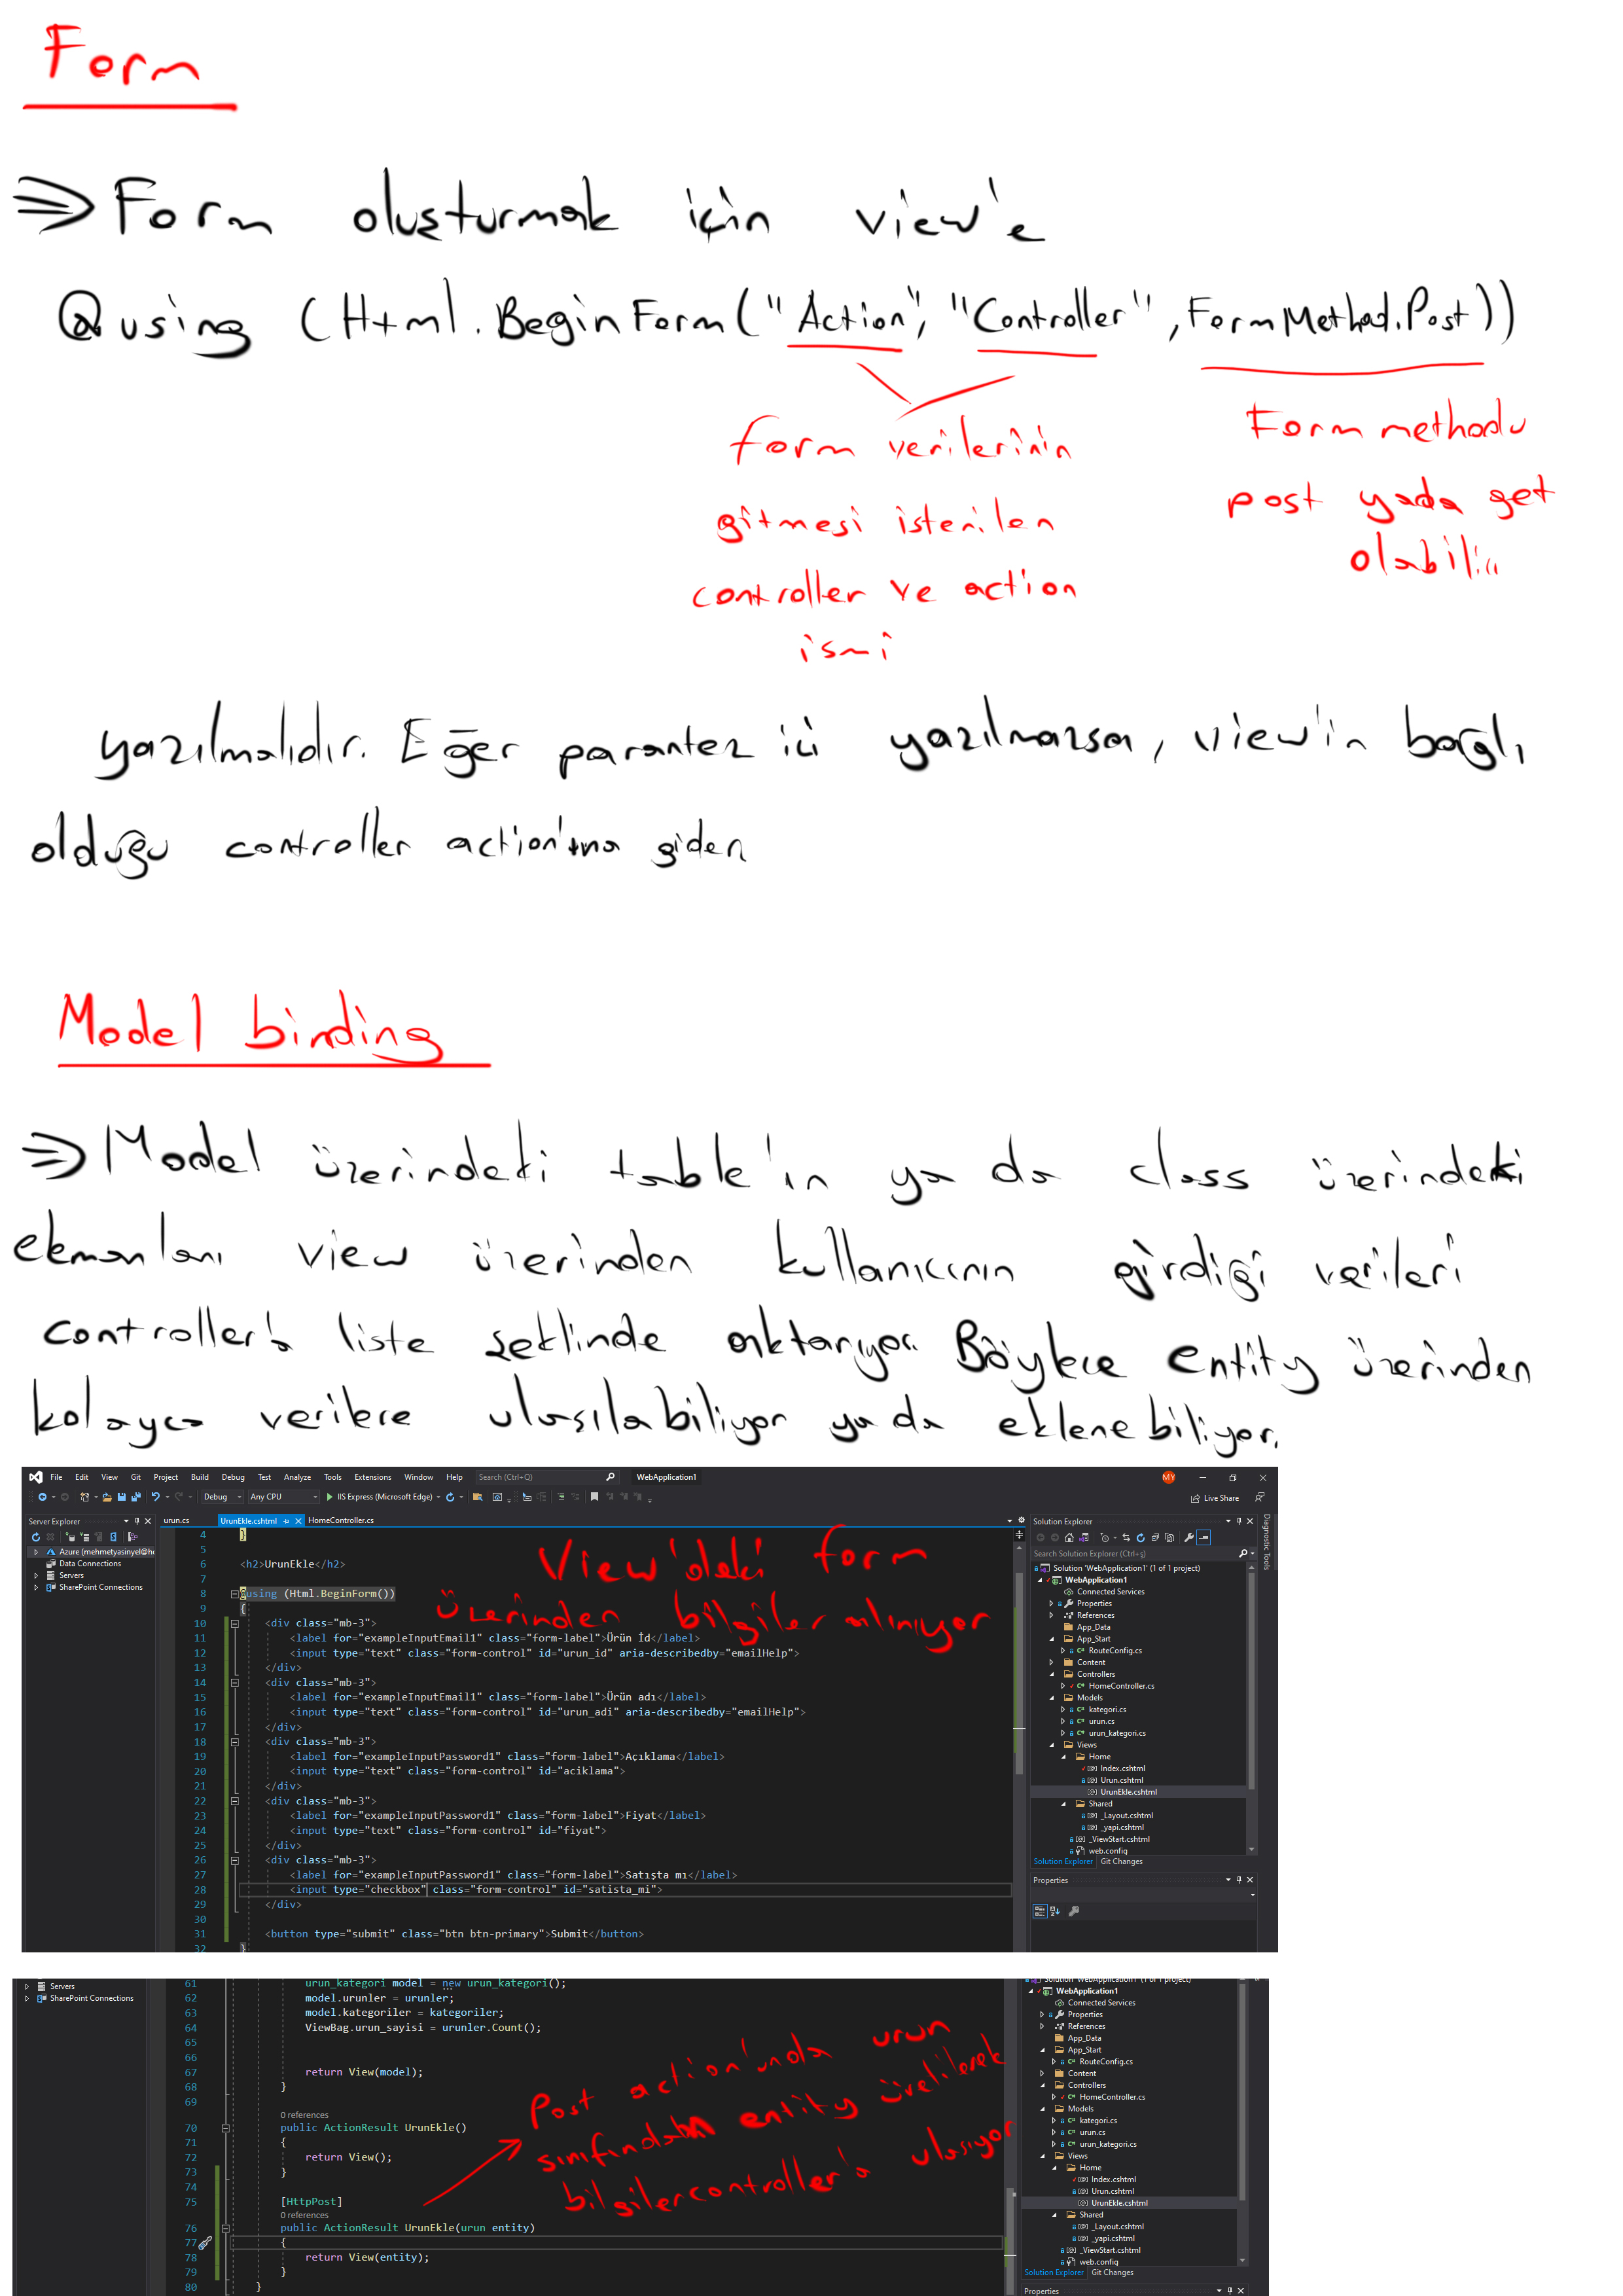 Form
=> Form oluşturmak için view'e
@using (Html.BeginForm("Action", "Controller", FormMethod.Post))
form verilerinin
gitmesi istenilen
controller ve action
ismi
Form methodu
post yada get
olabilir
yazılmalıdır. Eğer parantez içi yazılmazsa, view'in bağlı
olduğu controller action'ına gider
Model binding
=> Model üzerindeki table'ın ya da class üzerindeki
elemanları view üzerinden kullanıcının girdiği verileri
controller'a liste şeklinde aktarıyor. Böylece entity üzerinden
kolayca verilere ulaşılabiliyor yada eklenebiliyor.
File Edit View Git Project Build Debug Test Analyze Tools Extensions Window Help Search (Ctrl+Q) WebApplication1 MY
Debug Any CPU IIS Express (Microsoft Edge) Live Share
Server Explorer
Azure (mehmetyasinyel@h
Data Connections
Servers
SharePoint Connections
urun.cs UrunEkle.cshtml HomeController.cs
View'deki form
üzerinden bilgiler alınıyor
4 }
5
6 <h2>UrunEkle</h2>
7
8 @using (Html.BeginForm())
9 {
10 <div class="mb-3">
11 <label for="exampleInputEmail1" class="form-label">Ürün İd</label>
12 <input type="text" class="form-control" id="urun_id" aria-describedby="emailHelp">
13 </div>
14 <div class="mb-3">
15 <label for="exampleInputEmail1" class="form-label">Ürün adı</label>
16 <input type="text" class="form-control" id="urun_adi" aria-describedby="emailHelp">
17 </div>
18 <div class="mb-3">
19 <label for="exampleInputPassword1" class="form-label">Açıklama</label>
20 <input type="text" class="form-control" id="aciklama">
21 </div>
22 <div class="mb-3">
23 <label for="exampleInputPassword1" class="form-label">Fiyat</label>
24 <input type="text" class="form-control" id="fiyat">
25 </div>
26 <div class="mb-3">
27 <label for="exampleInputPassword1" class="form-label">Satışta mı</label>
28 <input type="checkbox" class="form-control" id="satista_mi">
29 </div>
30
31 <button type="submit" class="btn btn-primary">Submit</button>
32 }
Solution Explorer
Search Solution Explorer (Ctrl+ş)
Solution 'WebApplication1' (1 of 1 project)
WebApplication1
Connected Services
Properties
References
App_Data
App_Start
RouteConfig.cs
Content
Controllers
HomeController.cs
Models
kategori.cs
urun.cs
urun_kategori.cs
Views
Home
Index.cshtml
Urun.cshtml
UrunEkle.cshtml
Shared
_Layout.cshtml
_yapi.cshtml
_ViewStart.cshtml
web.config
Solution Explorer Git Changes
Properties
Diagnostic Tools
Servers
SharePoint Connections
61 urun_kategori model = new urun_kategori();
62 model.urunler = urunler;
63 model.kategoriler = kategoriler;
64 ViewBag.urun_sayisi = urunler.Count();
65
66
67 return View(model);
68 }
69
0 references
70 public ActionResult UrunEkle()
71 {
72 return View();
73 }
74
75 [HttpPost]
0 references
76 public ActionResult UrunEkle(urun entity)
77 {
78 return View(entity);
79 }
80 }
Post action'unda urun
sınıfından entity üretilerek
bilgiler controller'a ulaşıyor
Solution 'WebApplication1' (1 of 1 project)
WebApplication1
Connected Services
Properties
References
App_Data
App_Start
RouteConfig.cs
Content
Controllers
HomeController.cs
Models
kategori.cs
urun.cs
urun_kategori.cs
Views
Home
Index.cshtml
Urun.cshtml
UrunEkle.cshtml
Shared
_Layout.cshtml
_yapi.cshtml
_ViewStart.cshtml
web.config
Solution Explorer Git Changes
Properties